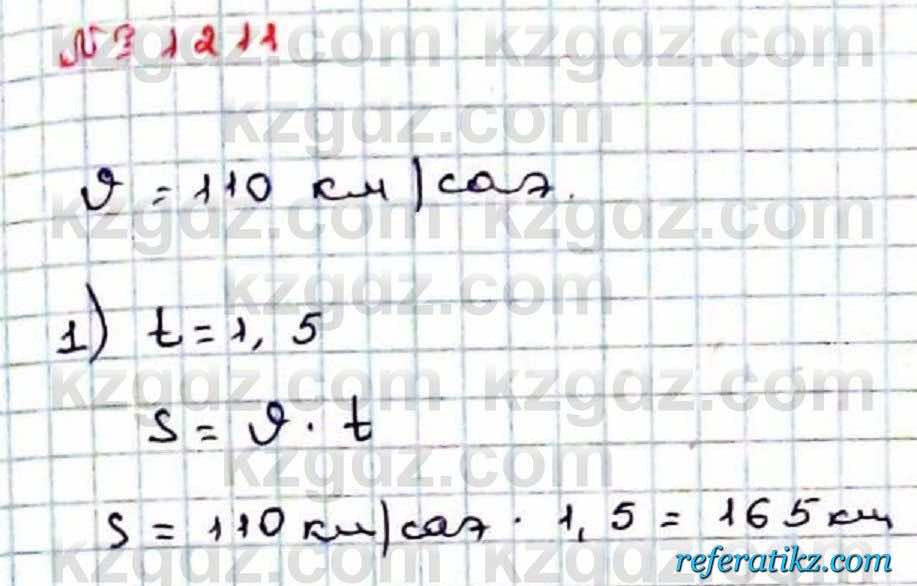 № 1211
kzgdz.com kzgdz.com
kzgdz.com
ϑ = 110 км/сағ.
kzgdz.com kzgdz.com
kzgdz.com
1) t = 1,5
kzgdz.com kzgdz.com
s = ϑ · t
kzgdz.com
s = 110 км/сағ · 1,5 = 165 км
kzgdz.com kzgdz.com
referatikz.com